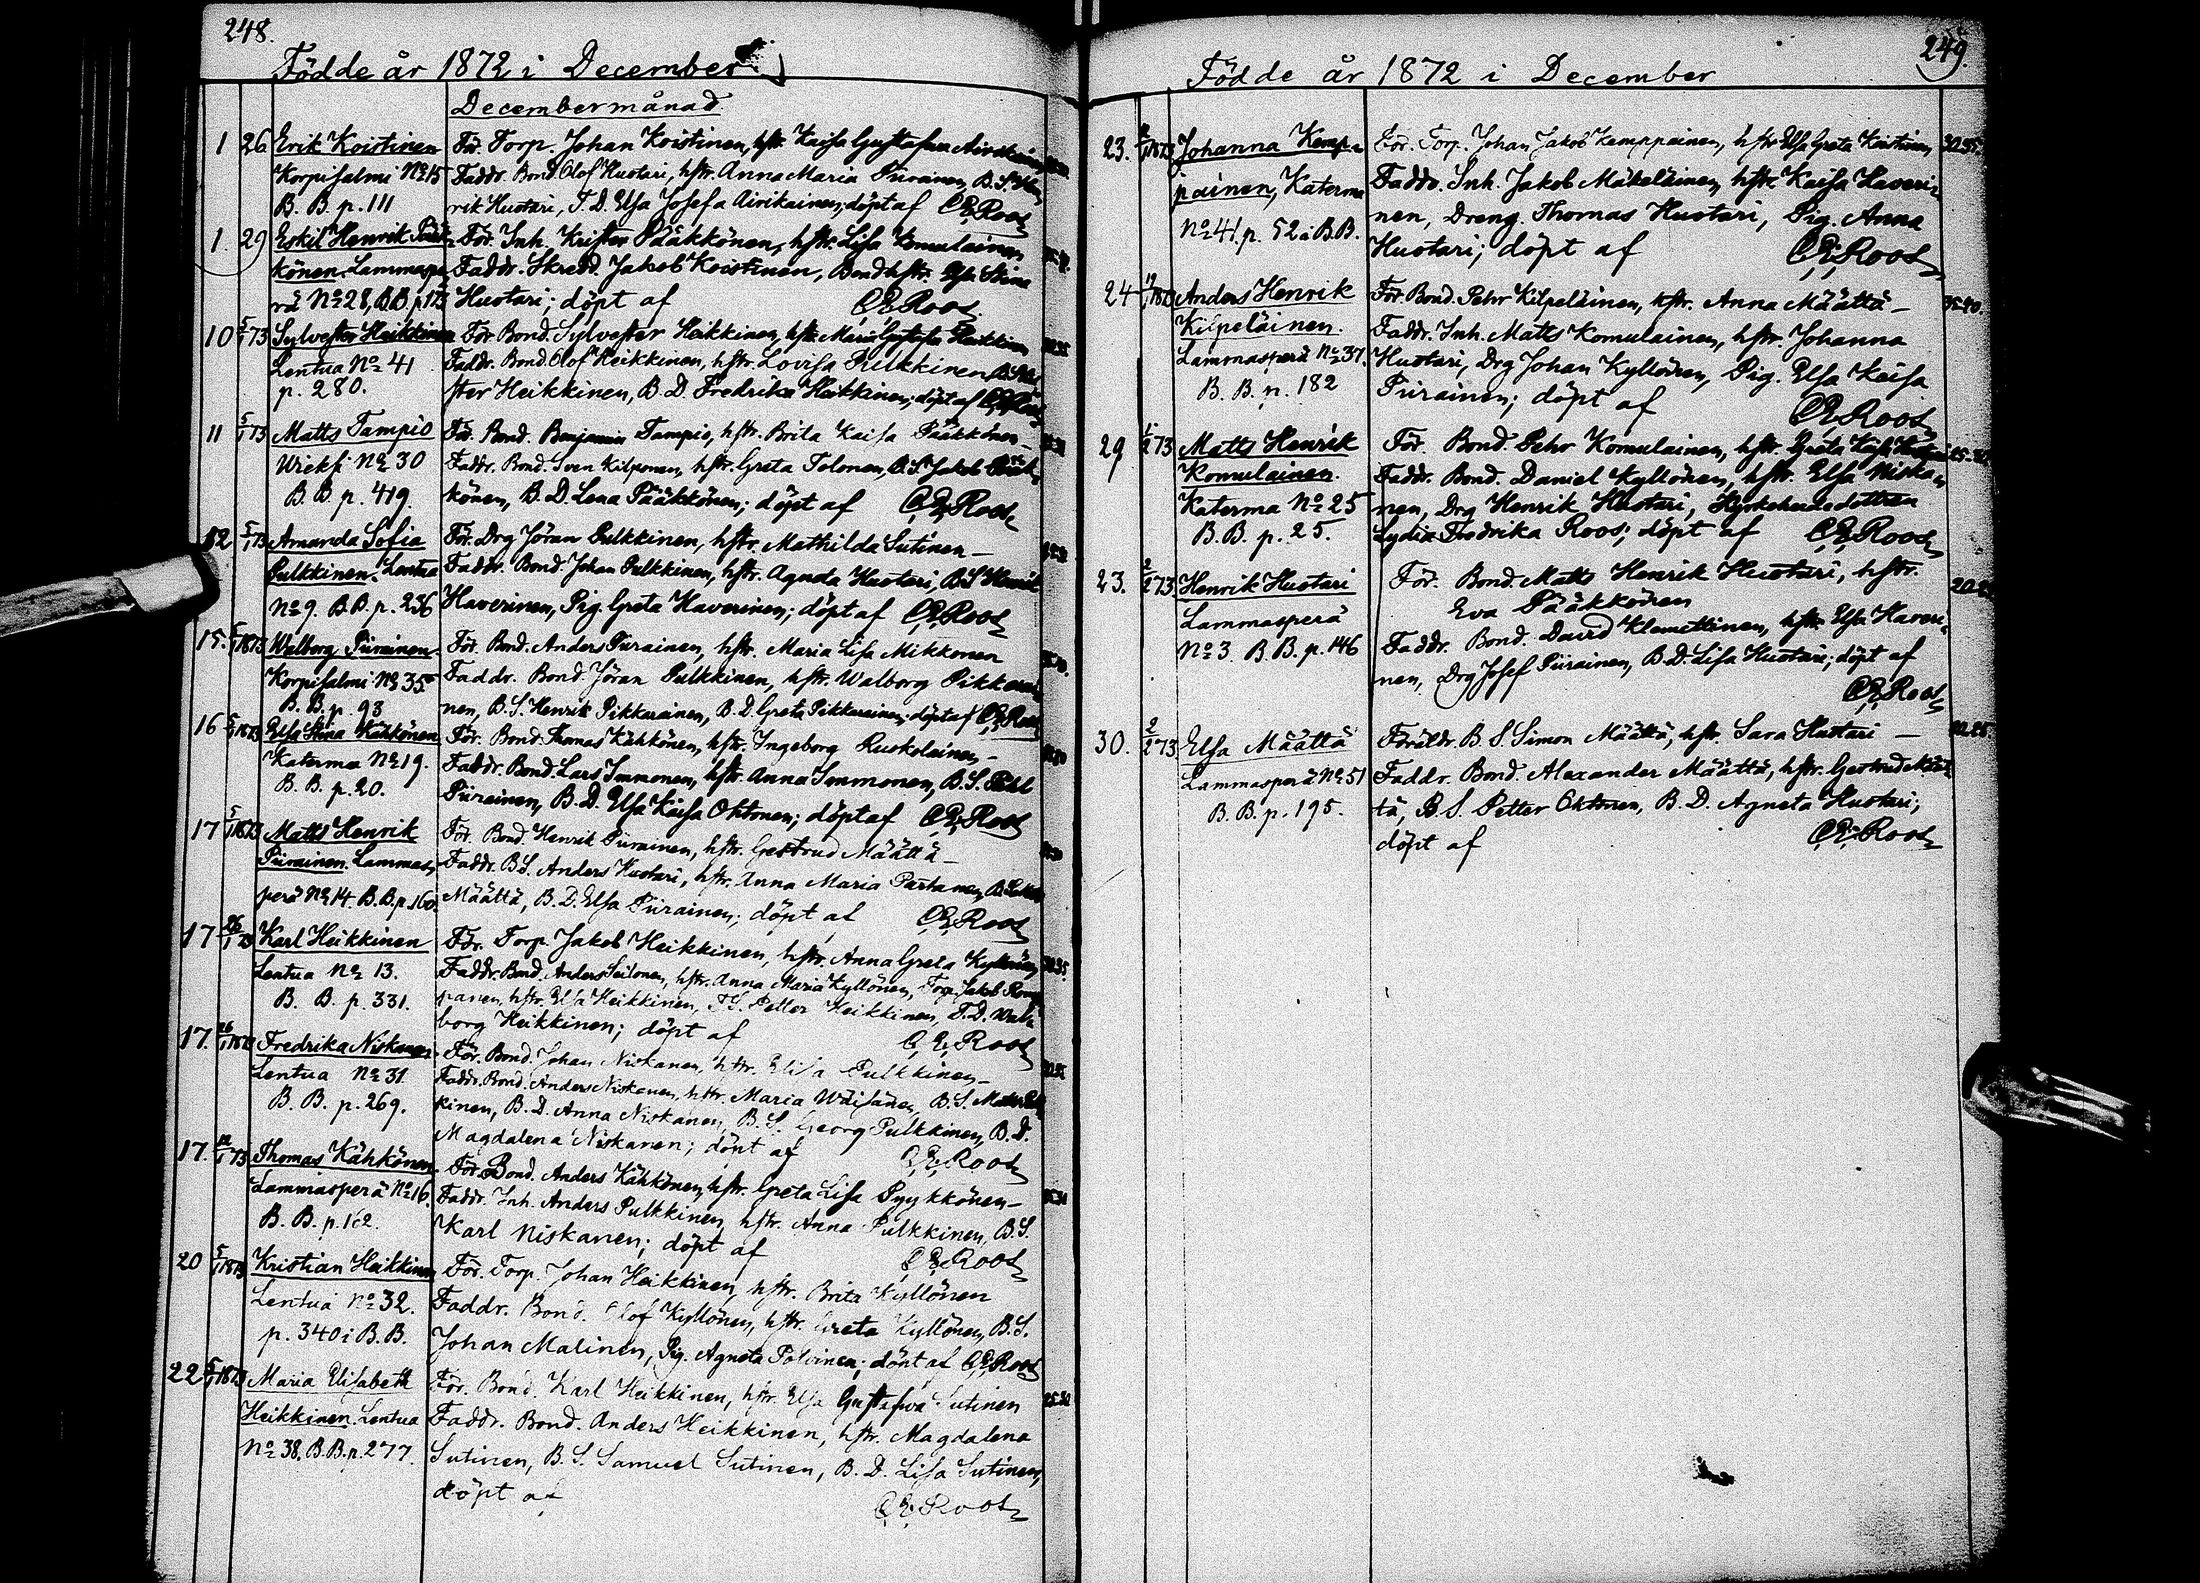 248.
Födde år 1872 i December
Decembermånad
1 26 Erik Koistinen För. Torp. Johan Koistinen, hstr. Kaisa Gustafva
Korpisalmi No 15 Faddr. Bond. Olof Huotari, hstr. Anna Maria Piirainen, B. S. Hen
B. B. p. 111 rik Huotari, T. D. Elsa Josefa Airikainen; döpt af C. E. Roos
1. 29 Eskil Henrik Pääk För. Inh. Krister Pääkkönen, hstr. Lisa Komulainen
könen. Lammaspe Faddr. Skredd. Jakob Koistinen, Bondhstr. Elsa Stina
rä No 28, B.B. p. 173 Huotari; döpt af C. E. Roos
10 5/1 73 Sylvester Heikkinen För. Bond. Sylvester Heikkinen, hstr. Maria Gustafva Heikkinen
Lentua No 41 Faddr. Bond. Olof Heikkinen, hstr. Lovisa Pulkkinen,
p. 280. ster Heikkinen, B. D. Fredrika Heikkinen; döpt af C. E. Roos
11 5/1 73 Matts Tampio För. Bond. Benjamin Tampio, hstr. Brita Kaisa Pääkkönen
Wieksi No 30 Faddr. Bond. Sven Kilponen, hstr. Greta Tolonen, B. S. Jakob Pääk
B. B. p. 419. könen, B. D. Lena Pääkkönen; döpt af C. E. Roos
12 5/1 73 Amanda Sofia För. Drg Jöran Pulkkinen, hstr. Mathilda Sutinen —
Pulkkinen. Lentua Faddr. Bond. Johan Pulkkinen, hstr. Agneta Huotari, B. S. Henrik
No 9. B. B. p. 236 Haverinen, Pig. Greta Haverinen; döpt af C. E. Roos
15. 5/1 1873 Walborg Piirainen. För. Bond. Anders Piirainen, hstr. Maria Lisa Mikkonen
Korpisalmi No 35 Faddr. Bond. Jöran Pulkkinen, hstr. Walborg Pikkarai
B. B. p. 93 nen, B. S. Henrik Pikkarainen, B. D. Greta Pikkarainen; döpt af C. E. Roos
16 5/1 1873 Elsa Stina Kähkönen För. Bond. Thomas Kähkönen, hstr. Ingeborg Ruskolainen —
Katerma No 19. Faddr. Bond. Lars Immonen, hstr. Anna Immonen, B. S.
B. B. p. 20. Piirainen, B. D. Elsa Kaisa Oktonen; döpt af C. E. Roos
17 5/1 1873 Matts Henrik För. Bond. Henrik Piirainen, hstr. Gertrud Määttä —
Piirainen. Lammas, Faddr. B. S. Anders Huotari, hstr. Anna Maria Partanen,
perä No 14. B. B. p. 160. Määttä, B. D. Elsa Piirainen; döpt af C. E. Roos
17 26/1 73 Karl Heikkinen För. Torp. Jakob Heikkinen, hstr. Anna Greta Kyllönen
Lentua No 13. Faddr. Bond. Anders Seilonen, hstr. Anna Maria Kyllönen, Torp. Jakob Romp
B. B. p. 331. panen, hstr. Elsa Heikkinen, T. S. Petter Heikkinen, T. D. Wal
borg Heikkinen; döpt af C. E. Roos
17. 26/1 1873 Fredrika Niskanen För. Bond. Johan Niskanen, hstr. Elisa Pulkkinen —
Lentua No 31 Faddr. Bond. Anders Niskanen, hstr. Maria Wäisänen, B. S. Matts Pulk
B. B. p. 269. kinen, B. D. Anna Niskanen, B. S. Georg Pulkkinen, B. D.
Magdalena Niskanen; döpt af C. E. Roos
17. 12/1 73 Thomas Kähkönen För. Bond. Anders Kähkönen, hstr. Greta Lisa Pyykkönen —
Lammasperä No 16. Faddr. Inh. Anders Pulkkinen, hstr. Anna Pulkkinen, B. S.
B. B. p. 162. Karl Niskanen; döpt af C. E. Roos
20 5/1 1873 Kristian Heikkinen För. Torp. Johan Heikkinen, hstr. Brita Kyllönen
Lentua No 32. Faddr. Bond. Olof Kyllönen, hstr. Greta Kyllönen, B. S.
p. 340 i B. B. Johan Malinen, Pig. Agneta Polvinen; döpt af C. E. Roos
22 5/1 1873 Maria Elisabeth För. Bond. Karl Heikkinen, hstr. Elsa Gustafva Sutinen
Heikkinen. Lentua Faddr. Bond. Anders Heikkinen, hstr. Magdalena
No 38. B. B. p. 277. Sutinen, B. S. Samuel Sutinen, B. D. Lisa Sutinen,
döpt af C. E. Roos
249.
Födde år 1872 i December
23. 1873 Johanna Kemp- För. Torp. Johan Jakob Kemppainen, hstr Elsa Greta Koistinen 30.35.
painen, Katerma Faddr. Inh. Jakob Mäkeläinen, hstr. Kaisa Haveri-
No 41. p. 52 i B.B. nen, Dreng. Thomas Huotari, Pig. Anna
Huotari; döpt af C. E. Roos
24 Anders Henrik För. Bond. Pehr Kilpeläinen, hstr. Anna Määttä — 35-40.
Kilpeläinen. Faddr. Inh. Matts Komulainen, hstr. Johanna
Lammasperä No 37. Huotari, Drg Johan Kyllönen, Pig. Elsa Kaisa
B. B. p. 182 Piirainen; döpt af
C. E. Roos
29 73 Matts Henrik För. Bond. Pehr Komulainen, hstr. Greta Kaisa
Komulainen. Faddr. Bond. Daniel Kyllönen, hstr. Elsa Niska-
Katerma No 25 nen, Drg Henrik Huotari, Kyrkoherdedottren
B. B. p. 25. Lydia Fredrika Roos; döpt af C. E. Roos
23. 73 Henrik Huotari För. Bond. Matts Henrik Huotari, hstr.
Lammasperä Eva Pääkkönen
No 3. B. B. p. 146 Faddr. Bond. David Klemettinen, hstr. Elsa Haveri-
nen, Drg Josef Piirainen, B. D. Lisa Huotari; döpt af
C. E. Roos
30. 2/2 73 Elsa Määttä Föräldr. B. S. Simon Määttä, hstr. Sara Huotari —
Lammasperä No 51 Faddr. Bond. Alexander Määttä, hstr. Gertrud Määt
B. B. p. 195. tä, B. S. Petter Oktonen, B. D. Agneta Huotari;
döpt af C. E. Roos